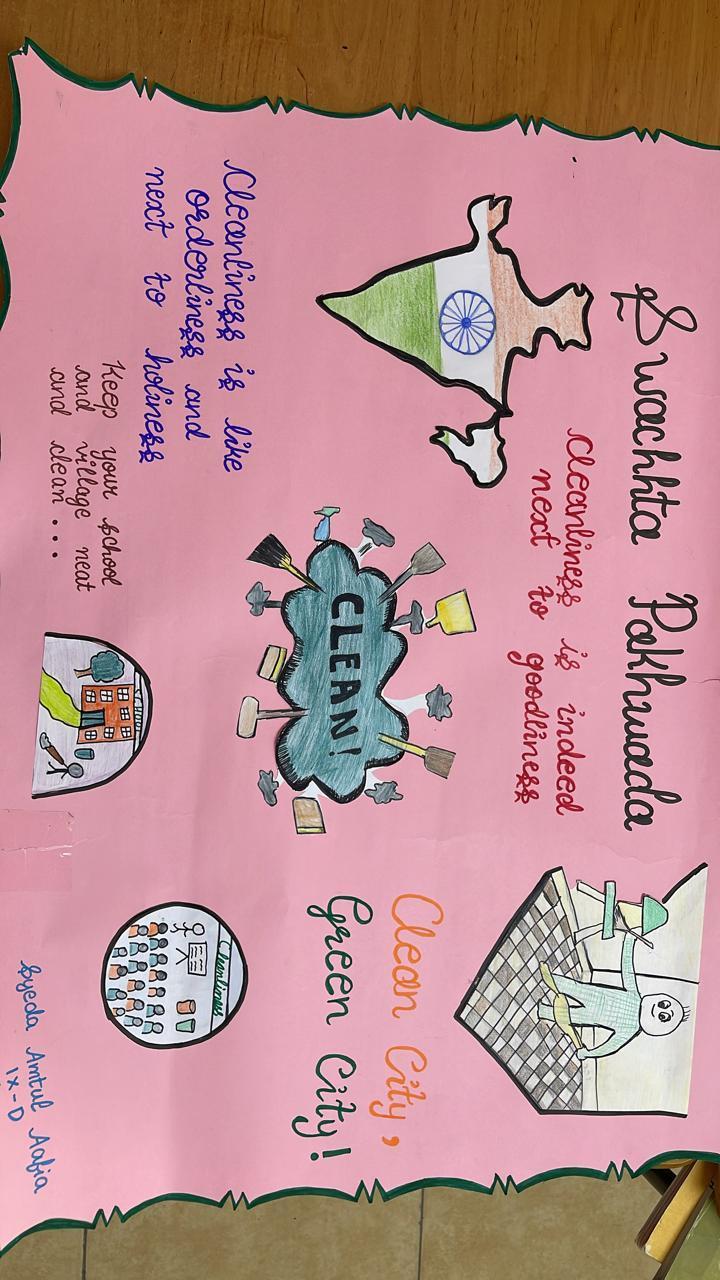 Swachhta Pakhwada
Cleanliness is indeed
next to goodliness
Cleanliness is like
orderliness and
next to holiness
CLEAN!
Clean City,
Green City!
Keep your school
and village neat
and clean...
Cleanliness
Syeda Amtul Aafia
IX-D